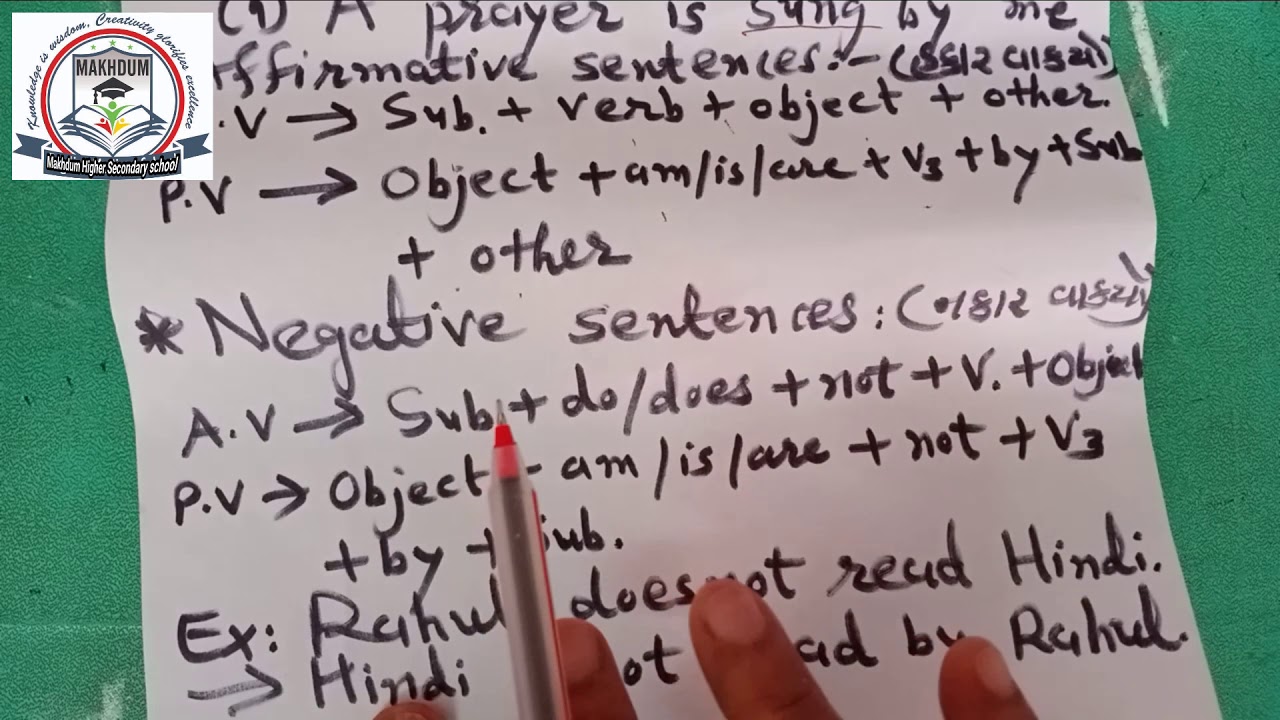 Knowledge is wisdom, Creativity glorifies excellence
MAKHDUM
Makhdum Higher Secondary school
(1) A prayer is sung by me
ffirmative sentences:- (હકાર વાક્યો)
.V → Sub. + verb + object + other.
P.V → Object + am/is/are + V3 + by + Sub
+ other
* Negative sentences: (નકાર વાક્યો)
A.V → Sub. + do/does + not + V. + Object
P.V → Object + am/is/are + not + V3
+ by + sub.
Ex: Rahul does not read Hindi.
→ Hindi ot ad by Rahul.